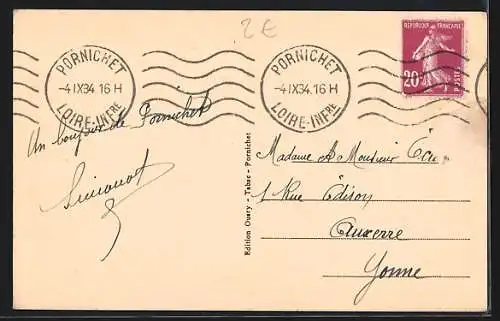 2€
PORNICHET
-4 IX34. 16 H
LOIRE-INFRE
PORNICHET
-4 IX34. 16 H
LOIRE-INFRE
REPUBLIQUE FRANÇAISE
20c
POSTES
Un bonjour de Pornichet
Edition Ouary - Tabac - Pornichet
Madame & Monsieur
1 Rue Edison
Auxerre
Yonne